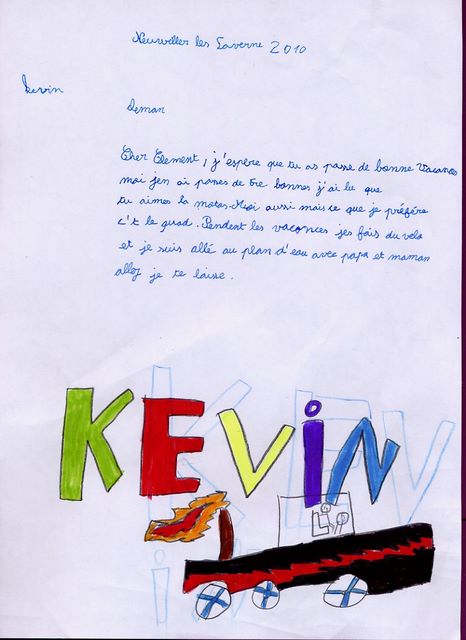 Neuwiller les Saverne 2010
Kevin
Deman
Cher Clement, j'espère que tu as passe de bonne Vacances
moi jen ai passes de tre bonnes j'ai lu que
tu aimes la moto. Moi aussi mais ce que je préfére
c't le quad. Pendent les vaconces jes fais du velo
et je suis allé au plan d'eau avec papa et maman
allez je te laisse.
KEViN